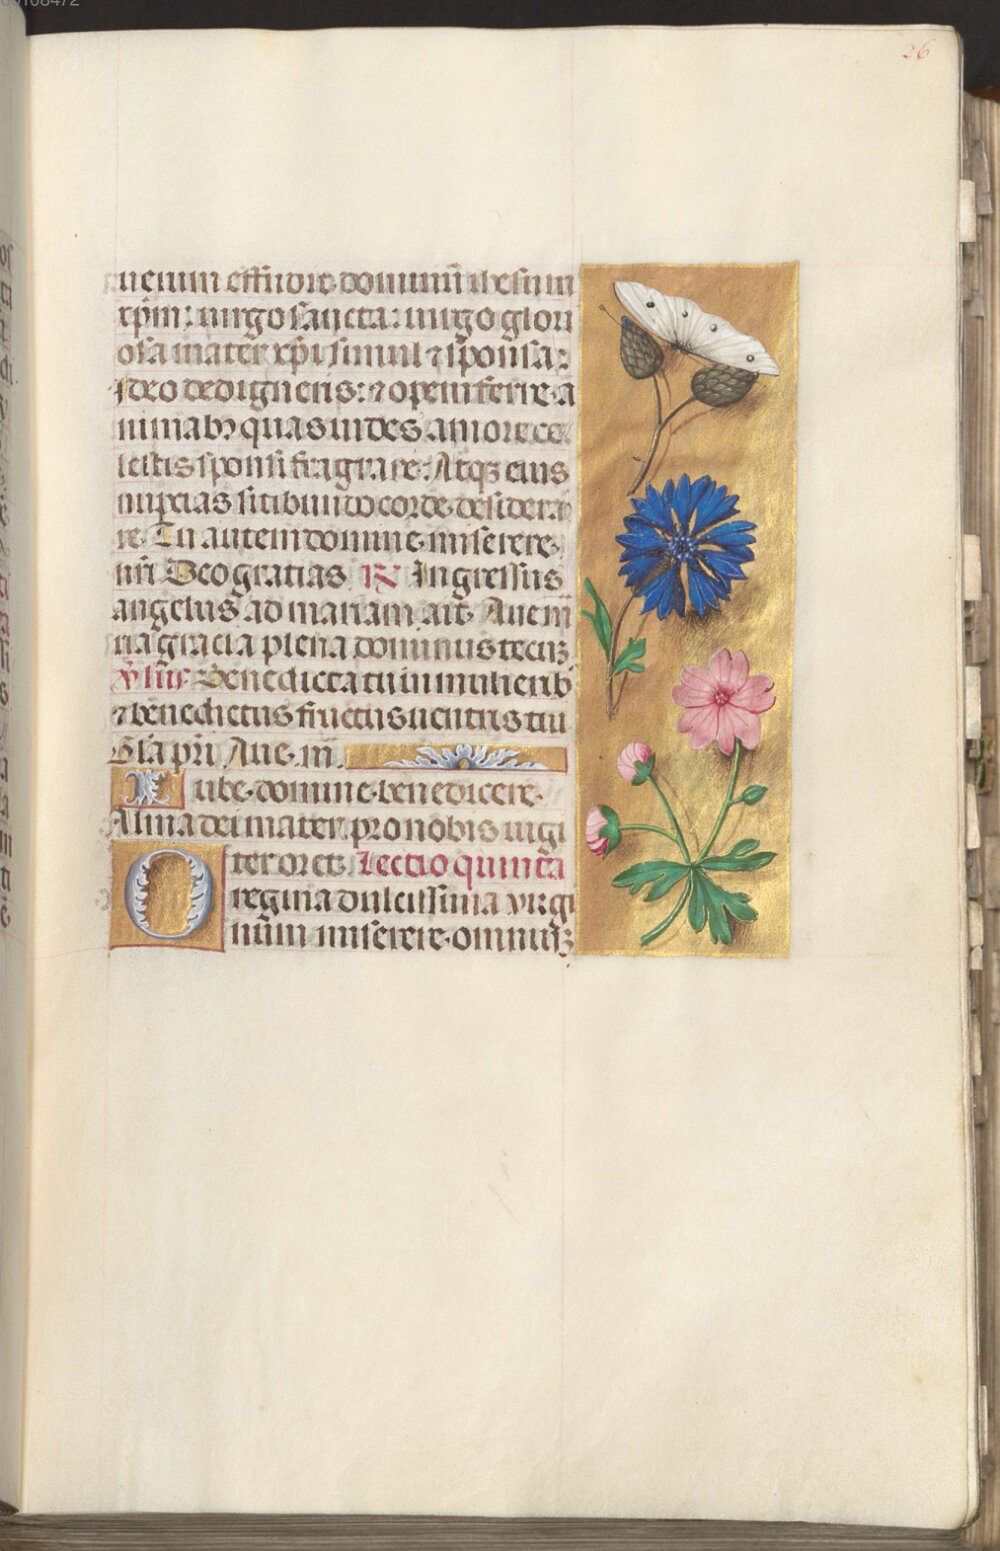 26
uenum effudit dominum ihesum
xp̄m: uirgo sancta: uirgo glori
osa mater xp̄i simul ⁊ sponsa:
Ideo dedigneris: ⁊ opem ferre a
nimabꝫ quas uides amore ce
lestis sponsi fragrare: Atqꝫ eius
nupcias sitibundo corde desidera
re. Tu autem domine miserere
nr̄i Deo gratias ℟ Ingressus
angelus ad mariam ait Aue m
ria gracia plena dominus tecuꝫ
V̄sus Benedicta tu in mulierib
⁊ benedictus fructus uentris tui
Gl̄a pr̄i Aue m̄.
Iube domne benedicere.
Alma dei mater pro nobis uigi
ter oret. Lectio quinta
O regina dulcissima virgi
num miserere omniuꝫ